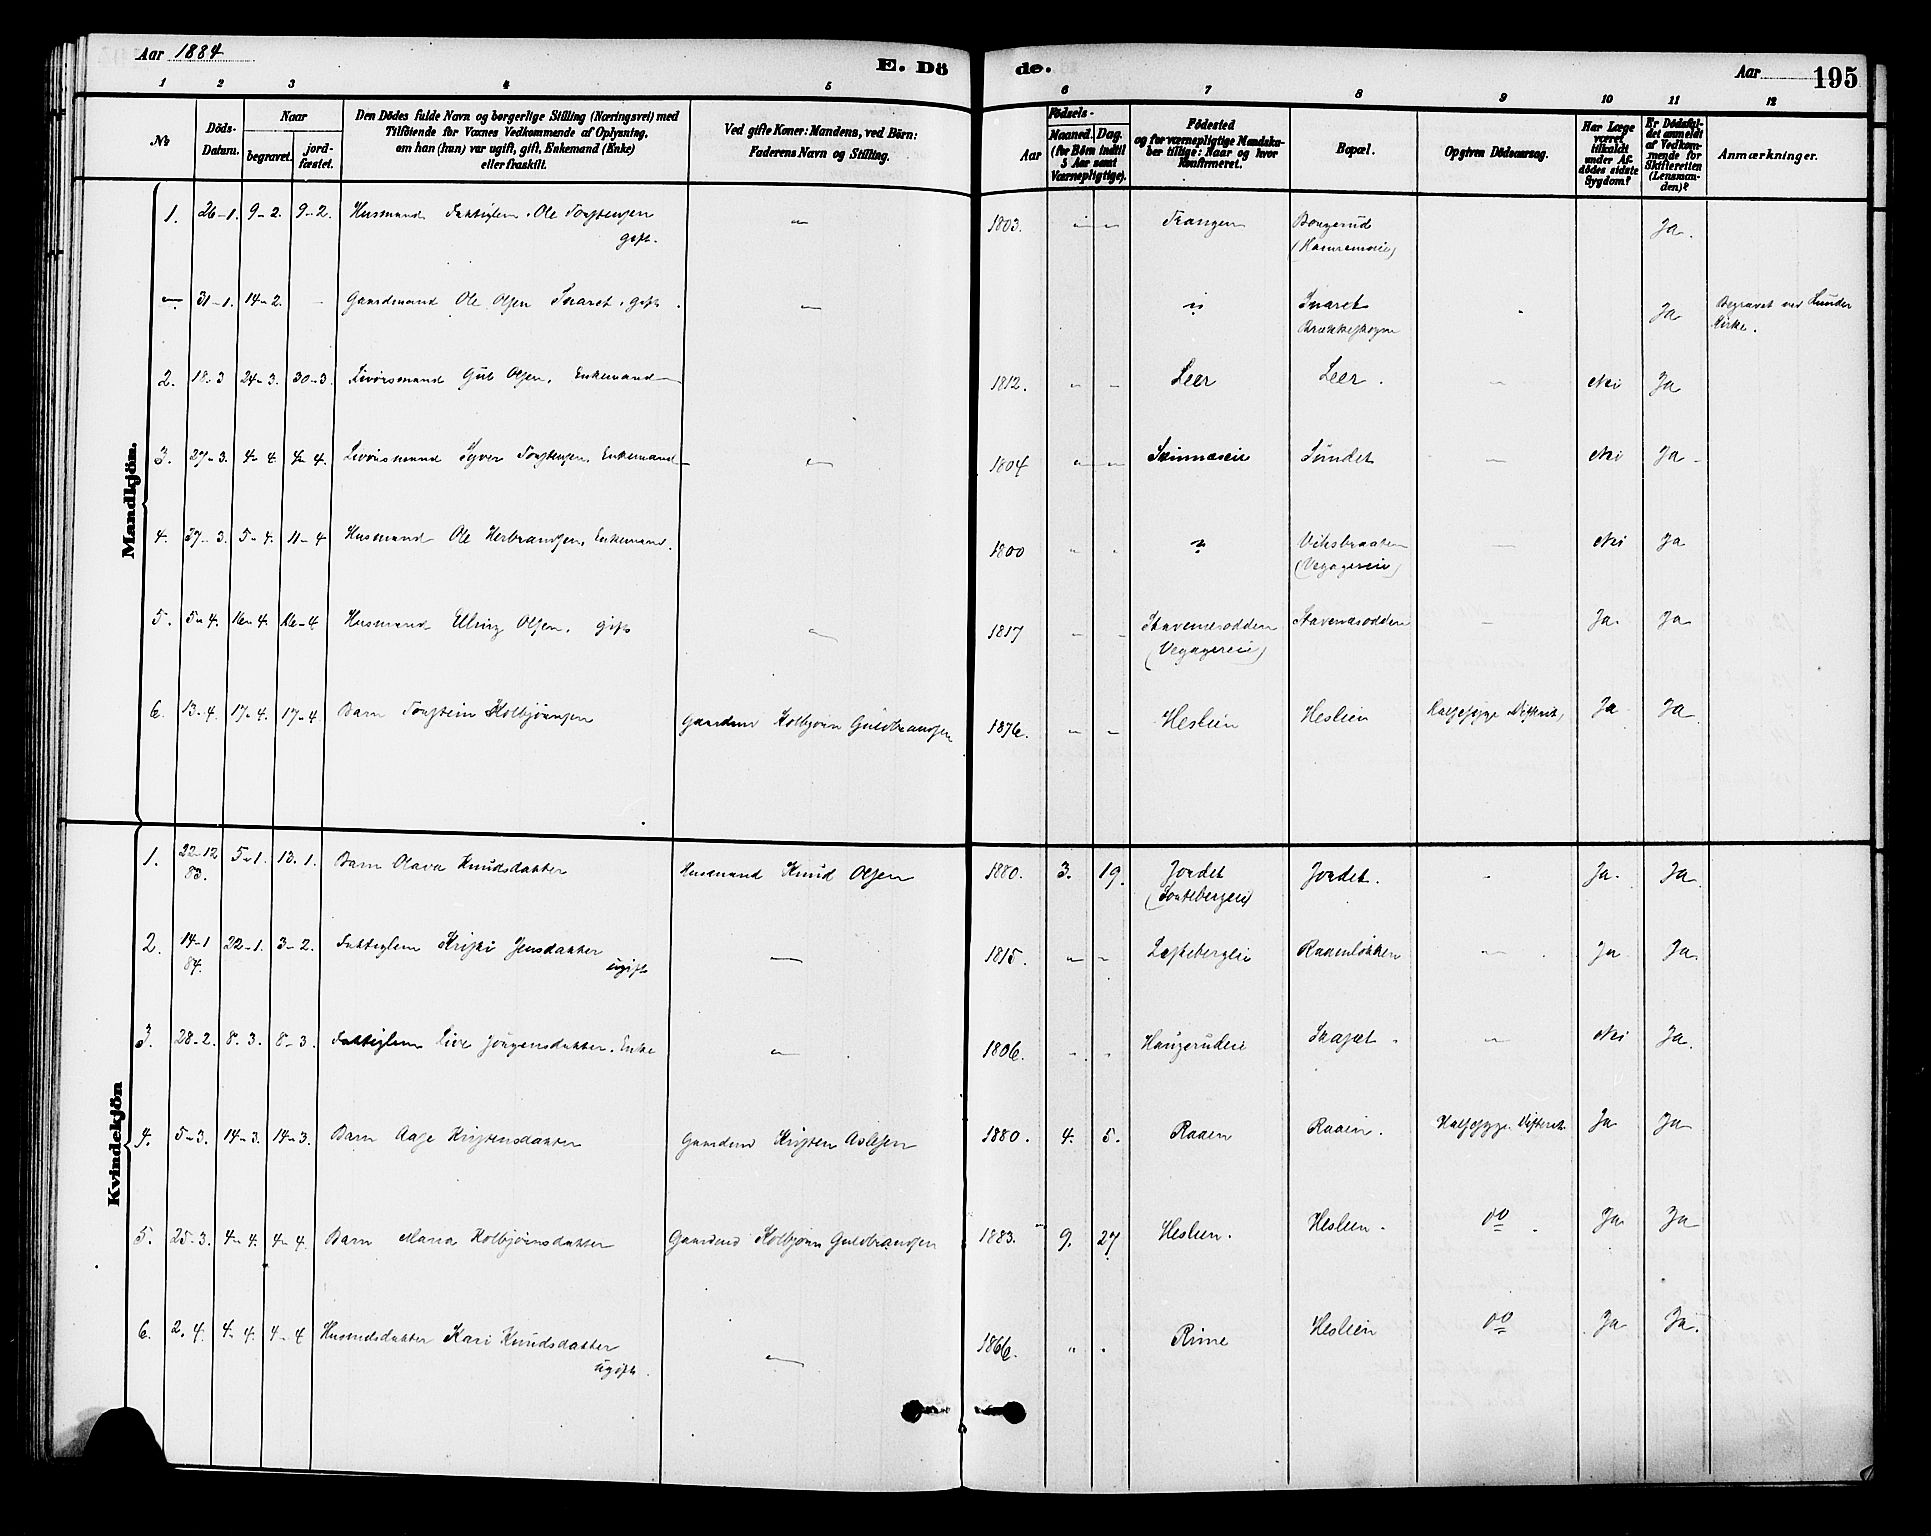 Aar 1884
E. Dö
de.
Aar
195
1 2 3 4 5 6 7 8 9 10 11 12
No
Döds-Datum.
Naar
begravet.
jord-fæstet.
Den Dödes fulde Navn og borgerlige Stilling (Næringsvei) med
Tilföiende for Voxnes Vedkommende af Oplysning,
om han (hun) var ugift, gift, Enkemand (Enke)
eller fraskilt.
Ved gifte Koner: Mandens, ved Börn:
Faderens Navn og Stilling.
Födsels-
Aar
Maaned. Dag.
(for Börn indtil
5 Aar samt
Værnepligtige).
Födested
og for værnepligtige Mandska-
ber tillige: Naar og hvor
Konfirmeret.
Bopæl.
Opgiven Dödsaarsag.
Har Læge
været
tilkaldt
under Af-
dödes sidste
Sygdom?
Er Dödsfal-
det anmeldt
af Vedkom-
mende for
Skifteretten
(Lensman-
den)?
Anmærkninger.
Mandkjön.
1. 26-1. 9-2. 9-2. Husmand Fattiglem. Ole Torstensen gift. " 1803. " " Trangen Bongerud Ja.
— 31-1. 14-2. - Gaardmand Ole Olsen Snaret. gift. " Snaret Ja Begravet ved Lunder
Kirke.
2. 18-3 24-3. 30-3. Livörsmand Gul Olsen. Enkemand — 1812. " " Leer Leer. " Nei Ja
3. 27-3. 4-4. 4-4. Livörsmand Syver Torstensen. Enkemand — " 1804 " " Sundet — Nei Ja
4. 5-4. 11-4 Husmand Ole Herbrandsen. Enkemand. 1800 " " ? Viksbraaten — Nei Ja
(Vegagereie)
5. 5-4. 16-4. 16-4 Husmand Elling Olsen. gift " 1817 " " Stavenesodden Stavenesodden — Ja. Ja
(Vegagereie)
6. 13-4. 17-4. 17-4. Barn Torstein Kolbjörnsen Gaardm Kolbjörn Guldbrandsen 1876. " " Heslien Heslien Halssyge Difterit Ja Ja
Kvindekjön
1. 22-12 83. 5-1. 13.1. Barn Olava Knudsdatter Husmand Knud Olsen 1880. 3. 19. Jordet Jordet. " Ja. Ja.
2. 14-1 84. 22-1. 3-2. Fattiglem Kristi Jensdatter ugift " 1815. " " Raaenlökken " Ja Ja.
3. 28-2. 8-3. 8-3. Fattiglem Live Jörgensdatter. Enke " 1806. " " Haugerudeie " Nei Ja.
4. 5-3. 14-3. 14-3. Barn Aase Kristensdatter Gaardm Kristen Aslesen 1880. 4. 5. Raaen Raaen. Halssyge. Difterit. Ja Ja
5. 25-3. 4-4. 4-4. Barn Maria Kolbjörnsdatter Gaardm Kolbjörn Guldbrandsen 1883. 9. 27 Heslien. Heslien. do Ja Ja
6. 2.4. 4-4. 4-4 Husmdsdatter Kari Knudsdatter ugift. " 1866. " " Rime Heslien do Ja Ja.